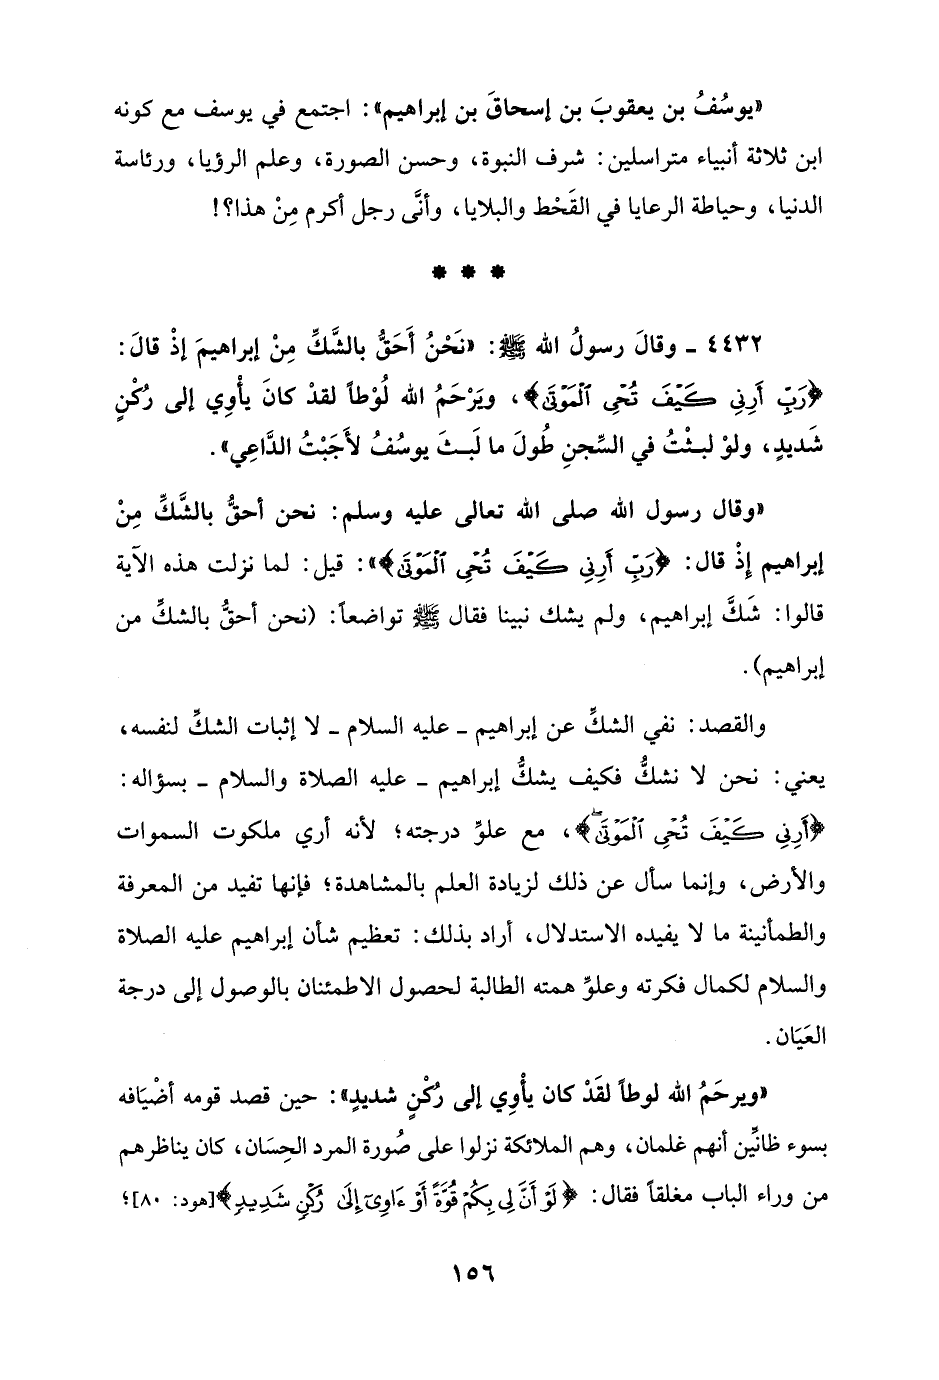 «يوسُفُ بن يعقوبَ بن إسحاقَ بن إبراهيم»: اجتمع في يوسف مع كونه
ابن ثلاثة أنبياء متراسلين: شرف النبوة، وحسن الصورة، وعلم الرؤيا، ورئاسة
الدنيا، وحياطة الرعايا في القَحْط والبلايا، وأنَّى رجل أكرم مِنْ هذا؟!
* * *
٤٤٣٢ ـ وقالَ رسولُ الله ﷺ: «نَحْنُ أَحَقُّ بالشَّكِّ مِنْ إبراهيمَ إذْ قالَ:
﴿رَبِّ أَرِنِي كَيْفَ تُحْيِ ٱلْمَوْتَىٰ﴾، ويَرْحَمُ الله لُوْطاً لقدْ كانَ يأْوِي إلى رُكْنٍ
شَديدٍ، ولوْ لبثْتُ في السِّجنِ طُولَ ما لَبثَ يوسُفُ لأَجَبْتُ الدَّاعِي».
«وقال رسول الله صلى الله تعالى عليه وسلم: نحن أحقُّ بالشَّكِّ مِنْ
إبراهيم إِذْ قال: ﴿رَبِّ أَرِنِي كَيْفَ تُحْيِ ٱلْمَوْتَىٰ﴾»: قيل: لما نزلت هذه الآية
قالوا: شَكَّ إبراهيم، ولم يشك نبينا فقال ﷺ تواضعاً: (نحن أحقُّ بالشكِّ من
إبراهيم).
والقصد: نفي الشكِّ عن إبراهيم ـ عليه السلام ـ لا إثبات الشكِّ لنفسه،
يعني: نحن لا نشكُّ فكيف يشكُّ إبراهيم ـ عليه الصلاة والسلام ـ بسؤاله:
﴿أَرِنِي كَيْفَ تُحْيِ ٱلْمَوْتَىٰ﴾، مع علوِّ درجته؛ لأنه أري ملكوت السموات
والأرض، وإنما سأل عن ذلك لزيادة العلم بالمشاهدة؛ فإنها تفيد من المعرفة
والطمأنينة ما لا يفيده الاستدلال، أراد بذلك: تعظيم شأن إبراهيم عليه الصلاة
والسلام لكمال فكرته وعلوِّ همته الطالبة لحصول الاطمئنان بالوصول إلى درجة
العَيَان.
«ويرحَمُ الله لوطاً لقَدْ كان يأْوِي إلى رُكْنٍ شديدٍ»: حين قصد قومه أضْيَافه
بسوء ظانِّين أنهم غلمان، وهم الملائكة نزلوا على صُورة المرد الحِسَان، كان يناظرهم
من وراء الباب مغلقاً فقال: ﴿لَوْ أَنَّ لِي بِكُمْ قُوَّةً أَوْ ءَاوِىٓ إِلَىٰ رُكْنٍ شَدِيدٍ﴾[هود: ٨٠]؛
١٥٦